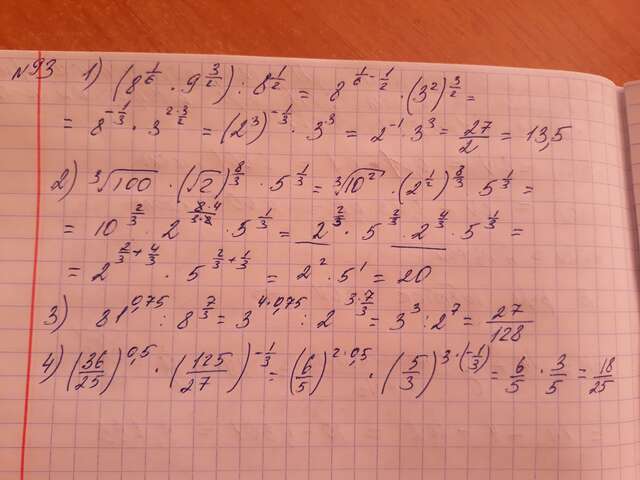 №93 1) (8^{1/6} · 9^{3/2}) : 8^{1/2} = 8^{1/6 - 1/2} · (3²)^{3/2} =
= 8^{-1/3} · 3^{2·3/2} = (2³)^{-1/3} · 3³ = 2^{-1} · 3³ = 27/2 = 13,5
2) ³√100 · (√2)^{8/3} · 5^{1/3} = ³√10² · (2^{1/2})^{8/3} · 5^{1/3} =
= 10^{2/3} · 2^{8·4/3·2} · 5^{1/3} = 2^{2/3} · 5^{2/3} · 2^{4/3} · 5^{1/3} =
= 2^{2/3 + 4/3} · 5^{2/3 + 1/3} = 2² · 5¹ = 20
3) 81^{0,75} : 8^{7/3} = 3^{4·0,75} : 2^{3·7/3} = 3³ : 2⁷ = 27/128
4) (36/25)^{0,5} · (125/27)^{-1/3} = (6/5)^{2·0,5} · (5/3)^{3·(-1/3)} = 6/5 · 3/5 = 18/25